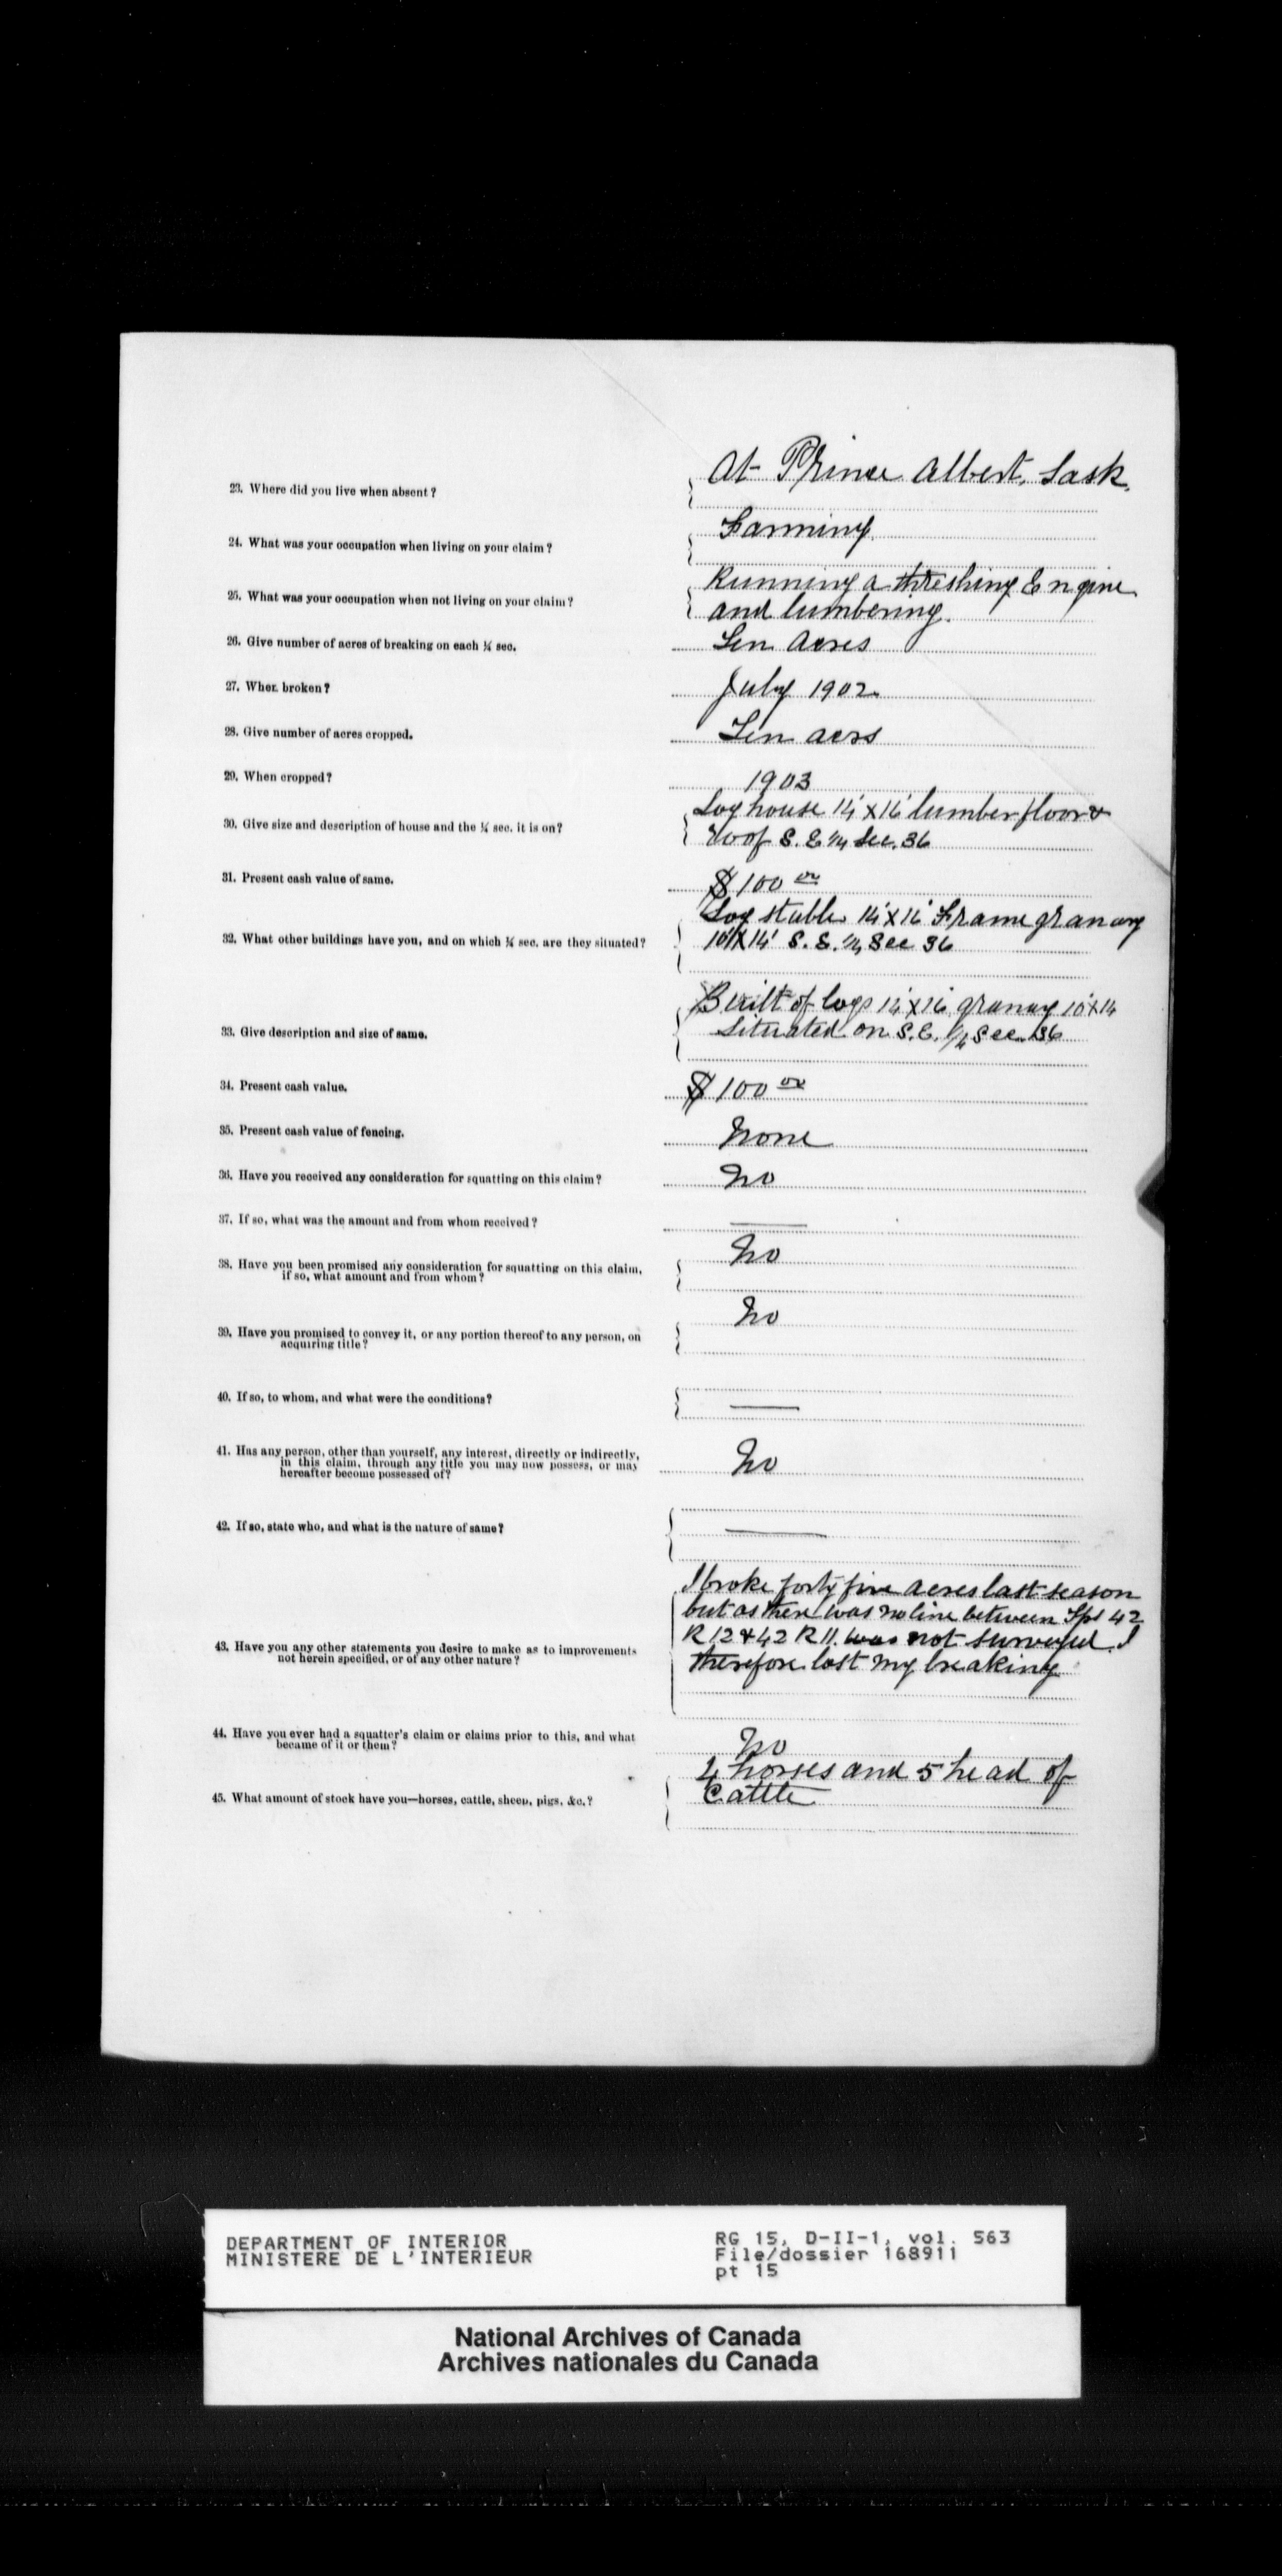 23. Where did you live when absent?
At Prince Albert, Sask.
24. What was your occupation when living on your claim?
Farming.
25. What was your occupation when not living on your claim?
Running a threshing Engine
and lumbering.
26. Give number of acres of breaking on each ¼ sec.
Ten Acres
27. When broken?
July 1902.
28. Give number of acres cropped.
Ten acrs
29. When cropped?
1903
30. Give size and description of house and the ¼ sec. it is on?
Log house 14'x16' lumber floor &
roof S.E ¼ Sec. 36
31. Present cash value of same.
$100 00
32. What other buildings have you, and on which ¼ sec. are they situated?
Log stable 14'x16' Frame granary
10'x14' S.E. ¼ Sec 36
33. Give description and size of same.
Built of logs 14'x16' granary 10'x14
Situated on S.E. ¼ Sec. 36
34. Present cash value.
$100 00
35. Present cash value of fencing.
None
36. Have you received any consideration for squatting on this claim?
No
37. If so, what was the amount and from whom received?
38. Have you been promised any consideration for squatting on this claim,
if so, what amount and from whom?
No
39. Have you promised to convey it, or any portion thereof to any person, on
acquiring title?
No
40. If so, to whom, and what were the conditions?
41. Has any person, other than yourself, any interest, directly or indirectly,
in this claim, through any title you may now possess, or may
hereafter become possessed of?
No
42. If so, state who, and what is the nature of same?
43. Have you any other statements you desire to make as to improvements
not herein specified, or of any other nature?
I broke forty five acres last season
but as there was no line between Tps 42
R 12 & 42 R 11. was not surveyed I
therefore lost my breaking
44. Have you ever had a squatter's claim or claims prior to this, and what
became of it or them?
No
45. What amount of stock have you—horses, cattle, sheep, pigs, &c.?
4 horses and 5 head of
Cattle
DEPARTMENT OF INTERIOR
MINISTERE DE L'INTERIEUR
RG 15, D-II-1, vol. 563
File/dossier 168911
pt 15
National Archives of Canada
Archives nationales du Canada